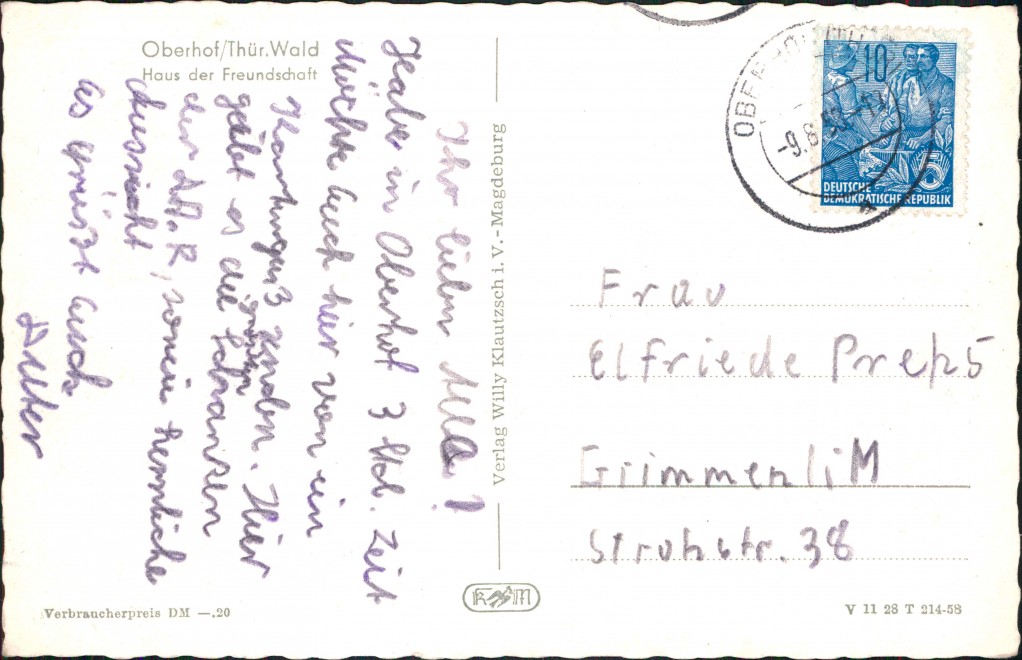 Oberhof/Thür. Wald
Haus der Freundschaft
Ihr lieben Alle!
Habe in Oberhof 3 Std. Zeit
Möchte Euch hier von ein
Kartengruß senden. Hier
giebt es die größten Schanzen
der DDR, sowie herrliche
Aussicht
Es Grüßt Euch
Dieter
Verlag Willy Klautzsch i. V.-Magdeburg
10
+5
DEUTSCHE
DEMOKRATISCHE REPUBLIK
Frau
Elfriede
Grimmen i M
Strohstr. 38
Verbraucherpreis DM —.20
V 11 28 T 214-58